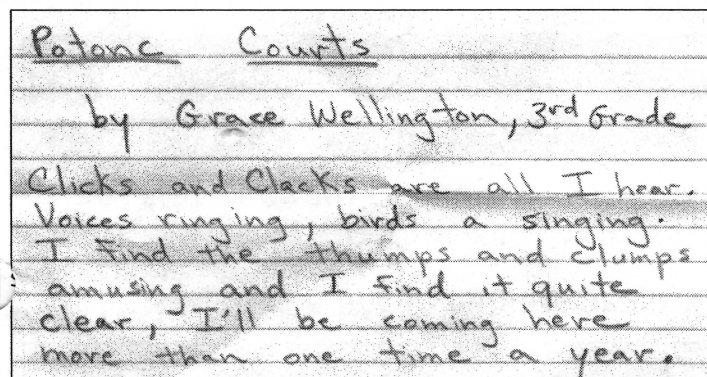 Potonc Courts
by Grace Wellington, 3rd Grade
Clicks and Clacks are all I hear.
Voices ringing, birds a singing.
I find the thumps and clumps
amusing and I find it quite
clear, I'll be coming here
more than one time a year.